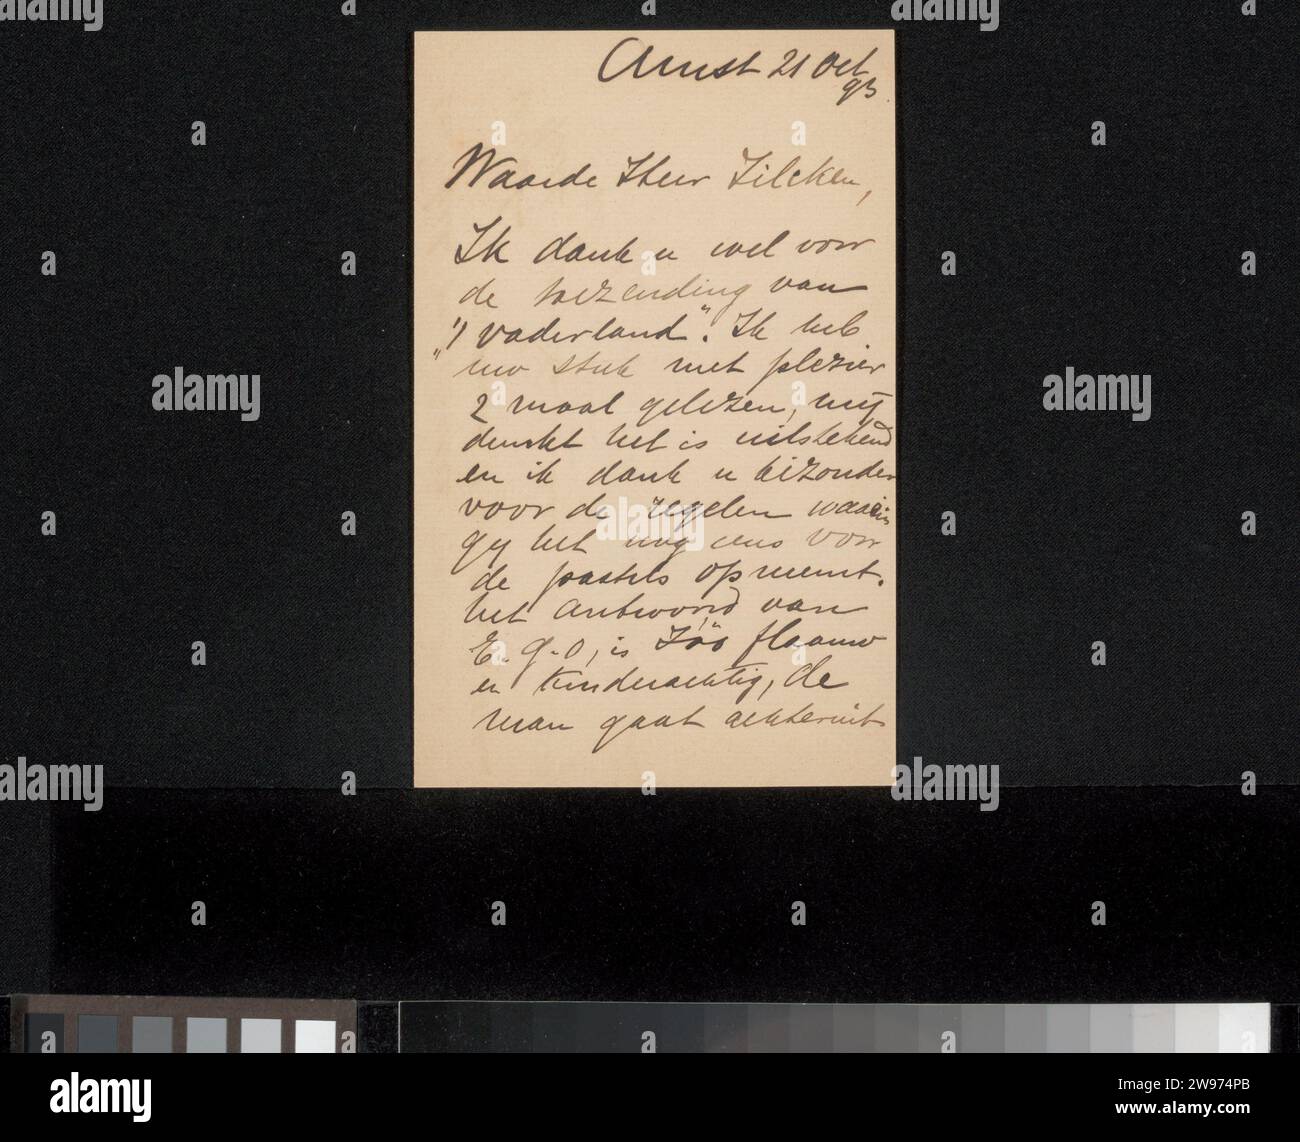 Amst 21 Oct
93.
Waarde Heer Zilcken,
Ik dank u wel voor
de toezending van
"'t vaderland". Ik heb
uw stuk met plezier
2 maal gelezen, mij
dunkt het is uitstekend
en ik dank u bizonder
voor de regelen waarin
gij het nog eens voor
de pastels opneemt.
Het antwoord van
E. g-o, is zóó flaauw
en kinderachtig, de
man gaat achteruit
alamy
Image ID: 2W974PB
www.alamy.com